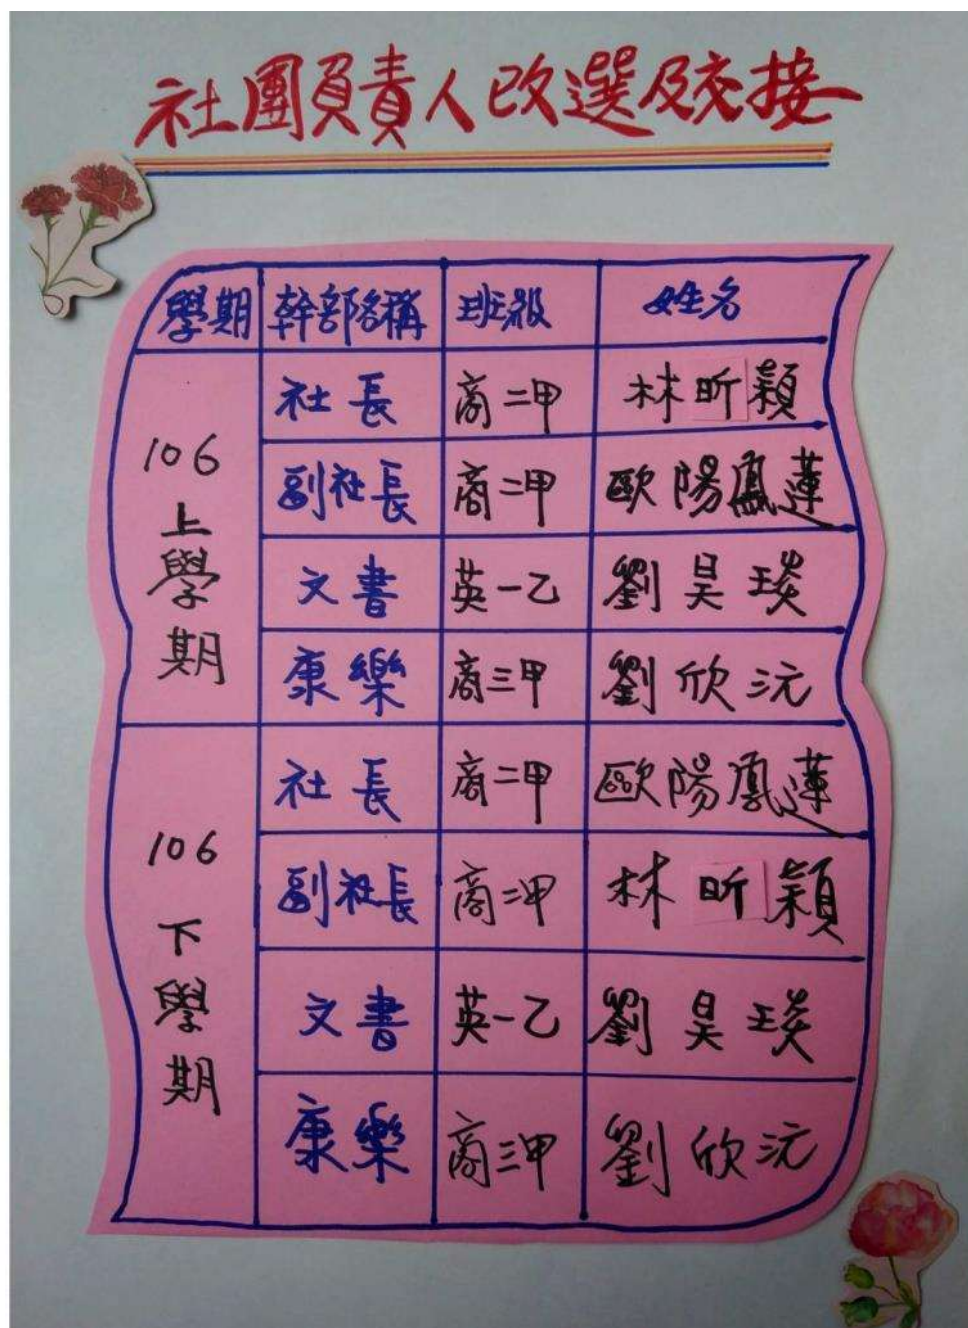 社團負責人改選及交接
學期 幹部名稱 班級 姓名
106上學期
社長 商二甲 林昕穎
副社長 商二甲 歐陽鳳蓮
文書 英一乙 劉昊琰
康樂 商三甲 劉欣沅
106下學期
社長 商二甲 歐陽鳳蓮
副社長 商二甲 林昕穎
文書 英一乙 劉昊琰
康樂 商三甲 劉欣沅